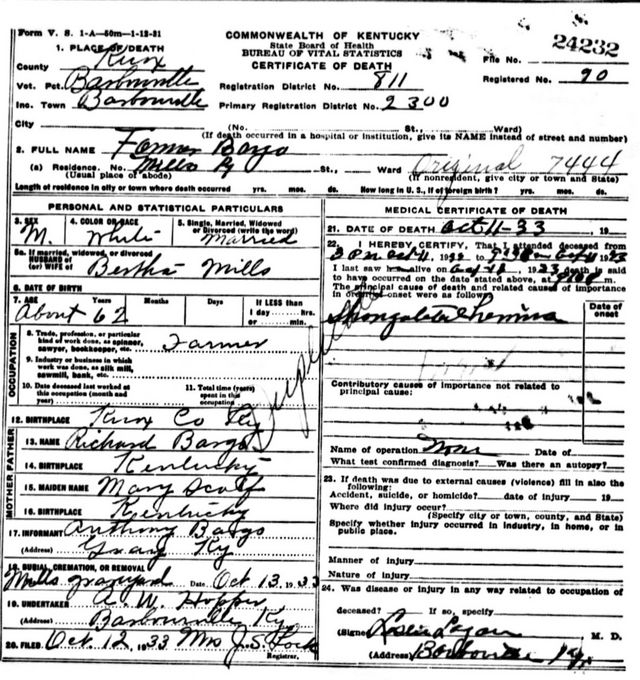 Form V. S. 1-A—50m—1-12-31
COMMONWEALTH OF KENTUCKY
State Board of Health
BUREAU OF VITAL STATISTICS
CERTIFICATE OF DEATH
24232
File No.
Registered No. 90
1. PLACE OF DEATH
County Knox
Vot. Pct. Barbourville
Inc. Town Barbourville
Registration District No. 811
Primary Registration District No. 2300
City (No. St., Ward)
(If death occurred in a hospital or institution, give its NAME instead of street and number)
2. FULL NAME Bargo
(a) Residence. No. Mills Ky St., Ward Original 7444
(Usual place of abode) (If nonresident, give city or town and State)
Length of residence in city or town where death occurred yrs. mos. ds. How long in U. S., if of foreign birth? yrs. mos. ds.
PERSONAL AND STATISTICAL PARTICULARS
3. SEX M.
4. COLOR OR RACE White
5. Single, Married, Widowed or Divorced (write the word) Married
5a. If married, widowed, or divorced
HUSBAND of
(or) WIFE of Bertha Mills
6. DATE OF BIRTH
7. AGE Years Months Days If LESS than
1 day hrs.
or min.
About 62
OCCUPATION
8. Trade, profession, or particular
kind of work done, as spinner,
sawyer, bookkeeper, etc. Farmer
9. Industry or business in which
work was done, as silk mill,
sawmill, bank, etc.
10. Date deceased last worked at
this occupation (month and
year)
11. Total time (years)
spent in this
occupation
12. BIRTHPLACE Knox Co Ky
MOTHER FATHER
13. NAME Richard Bargo
14. BIRTHPLACE Kentucky
15. MAIDEN NAME Mary Scalf
16. BIRTHPLACE Kentucky
17. INFORMANT Anthony Bargo
(Address) Gray Ky
18. BURIAL, CREMATION, OR REMOVAL
Mills graveyard Date Oct 13 1933
19. UNDERTAKER A. W. Hopper
Barbourville Ky
20. FILED Oct. 12 1933 Mrs J. S. Lock
Registrar.
MEDICAL CERTIFICATE OF DEATH
21. DATE OF DEATH Oct 11-33, 19
22. I HEREBY CERTIFY, That I attended deceased from
I last saw him alive on 1933 death is said
to have occurred on the date stated above, at m.
The principal cause of death and related causes of importance
in order of onset were as follows:
Date of onset
Contributory causes of importance not related to
principal cause:
Name of operation None Date of
What test confirmed diagnosis? Was there an autopsy?
23. If death was due to external causes (violence) fill in also the
following:
Accident, suicide, or homicide? date of injury 19
Where did injury occur?
(Specify city or town, county, and State)
Specify whether injury occurred in industry, in home, or in
public place.
Manner of injury
Nature of injury
24. Was disease or injury in any way related to occupation of
deceased? If so, specify
(Signed) Leslie Logan M. D.
(Address)